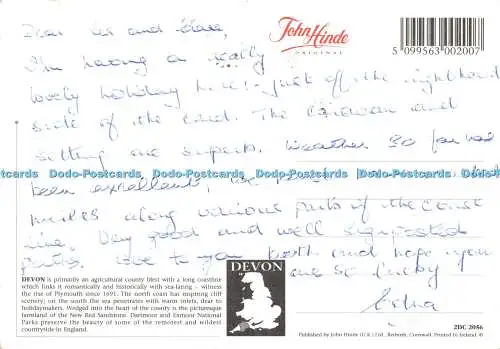 Dear Les and
John Hinde
ORIGINAL
5 099563 002007
I'm having a really
lovely holiday here! just off the righthand
side of the card. The Caravan and
sitting are superb. Weather so far has
been excellent,
miles along various parts of the coast
line. Very good and well signposted
paths. Love to you both and hope you
are so lucky
Edna
Dodo-Postcards Dodo-Postcards Dodo-Postcards Dodo-Postcards Dodo-Postcards
DEVON is primarily an agricultural county blest with a long coastline
which links it romantically and historically with sea-faring – witness
the rise of Plymouth since 1691. The north coast has inspiring cliff
scenery; on the south the sea penetrates with warm inlets, dear to
holidaymakers. Wedged into the heart of the county is the picturesque
farmland of the New Red Sandstone. Dartmoor and Exmoor National
Parks preserve the beauty of some of the remotest and wildest
countryside in England.
DEVON
2DC 2056
Published by John Hinde (U.K.) Ltd. Redruth, Cornwall. Printed in Ireland. ©